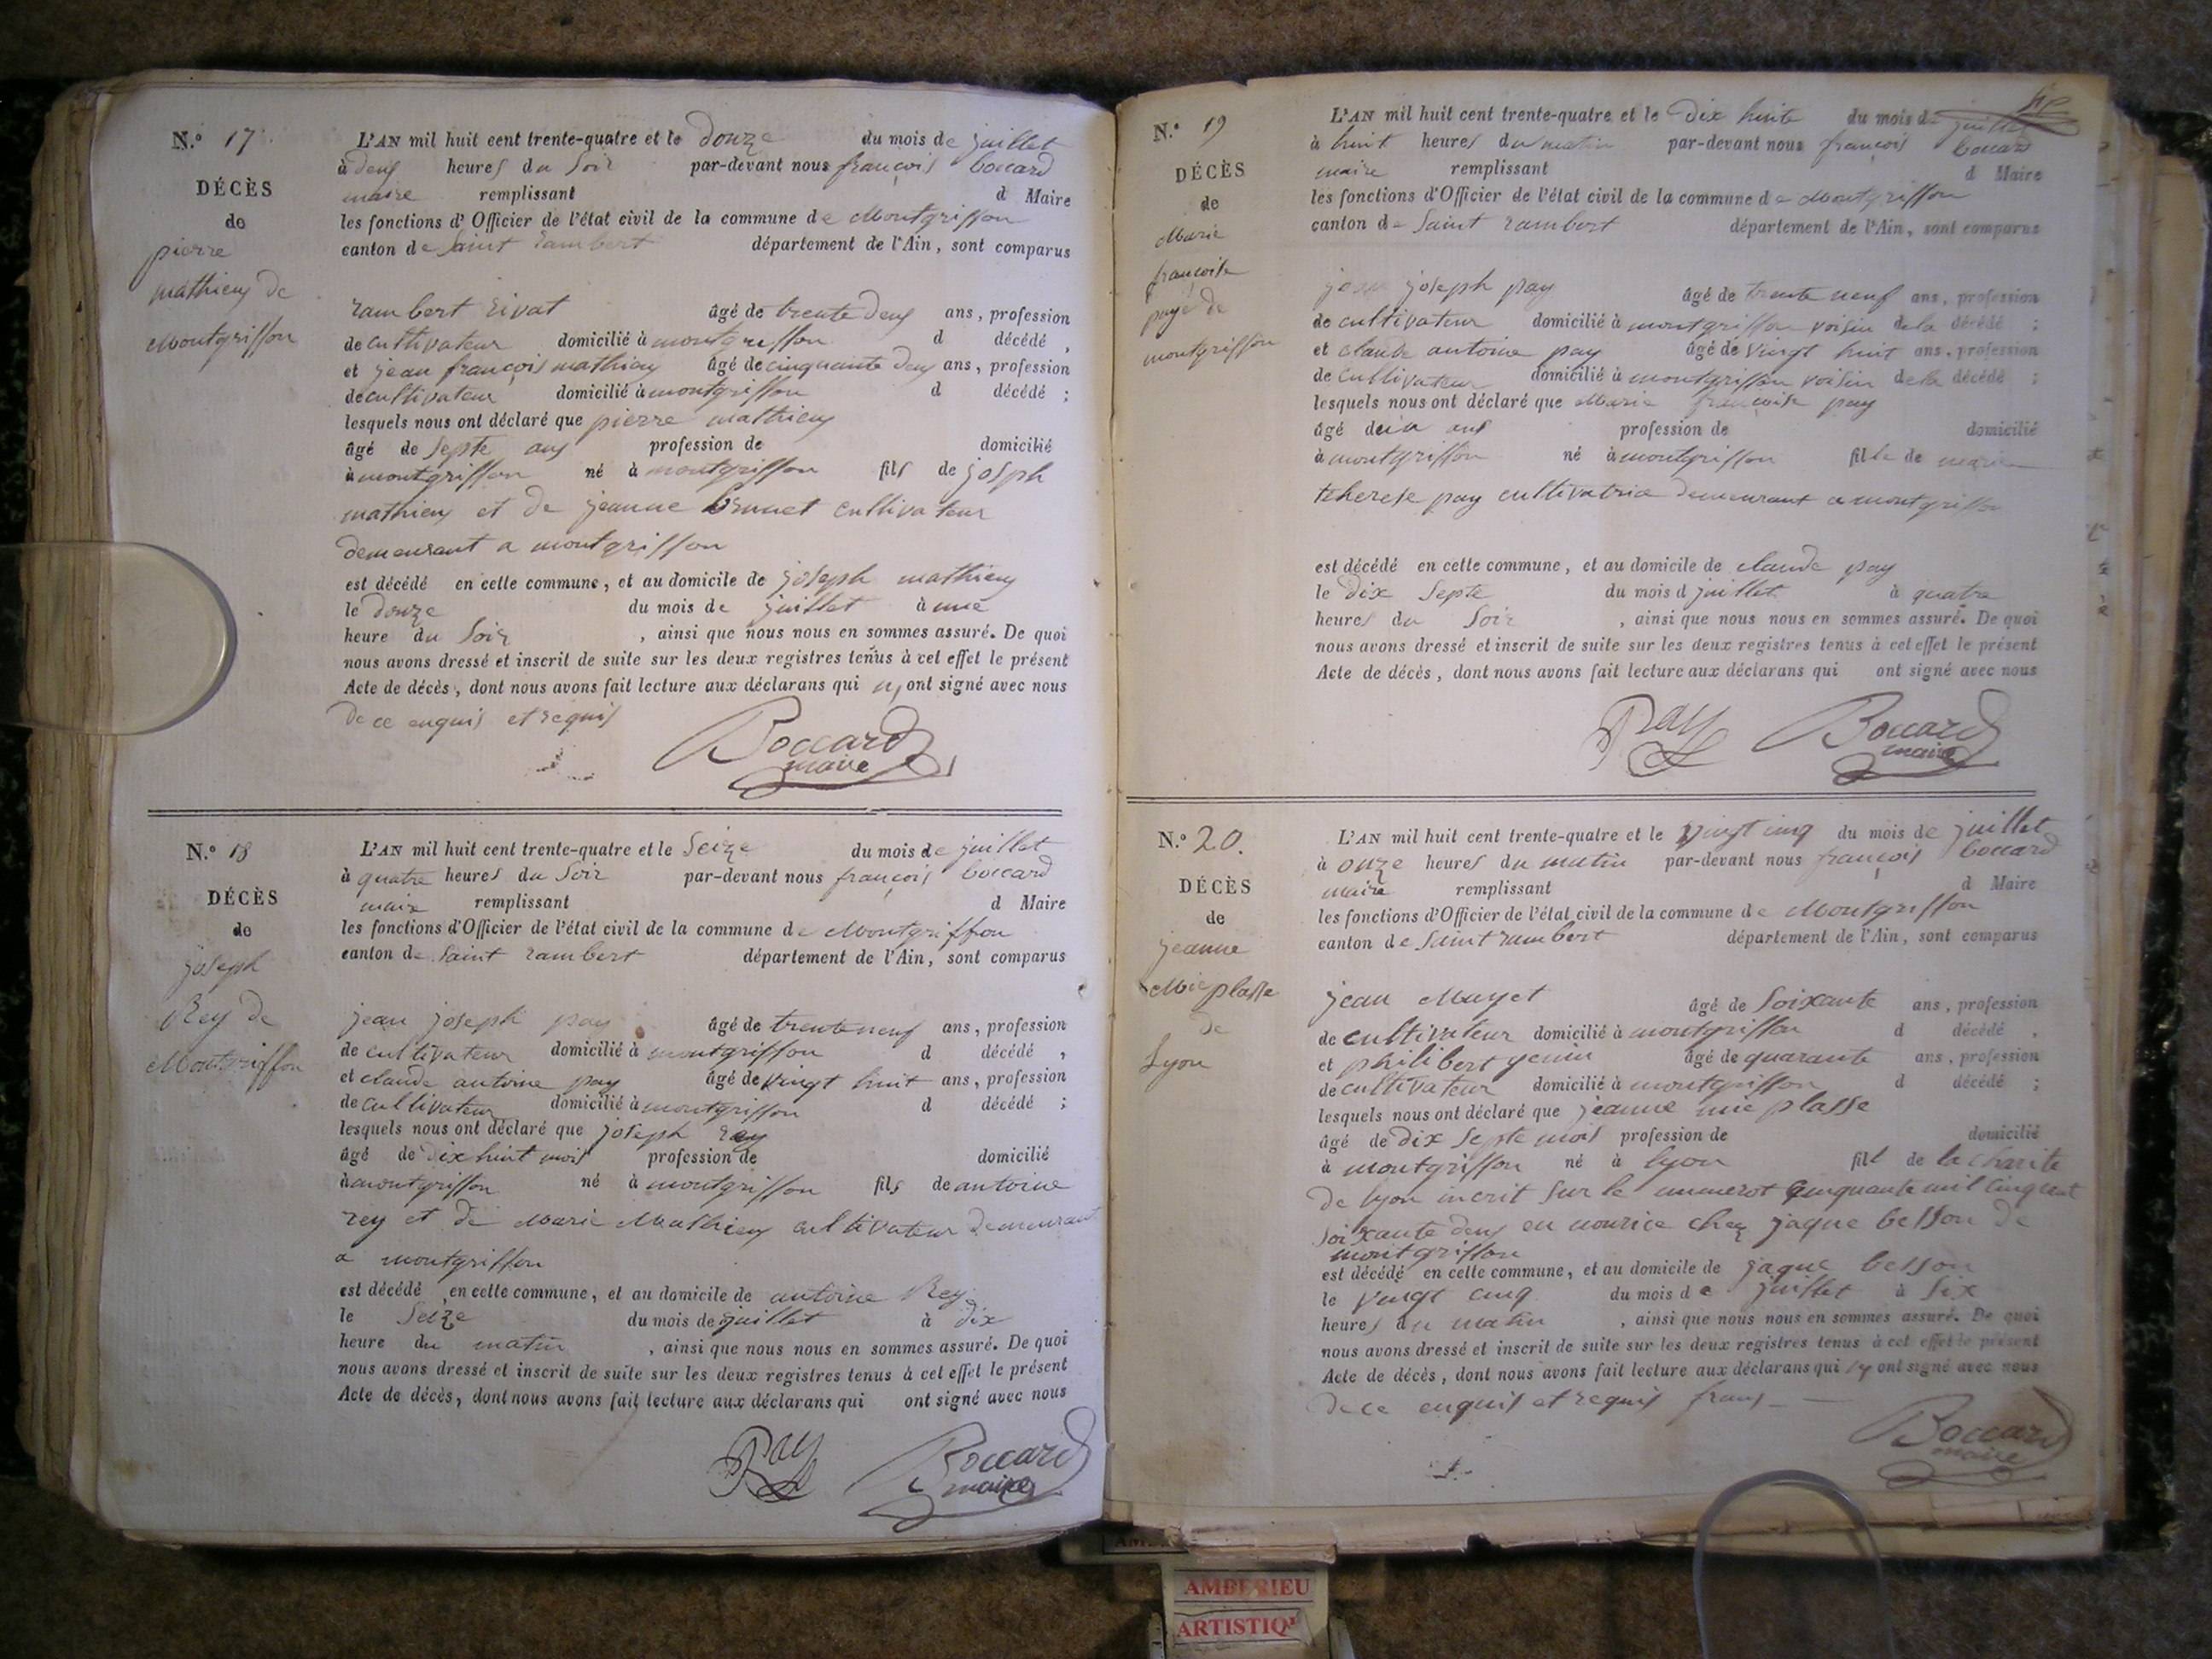 N.° 17
DÉCÈS
de
pierre
mathieu de
Montgriffon
L'AN mil huit cent trente-quatre et le douze du mois de juillet
à deux heures du soir par-devant nous françois boccard
maire remplissant d Maire
les fonctions d'Officier de l'état civil de la commune de Montgriffon
canton de saint rambert département de l'Ain, sont comparus
rambert rivat âgé de trente deux ans, profession
de cultivateur domicilié à montgriffon d décédé,
et jean françois mathieu âgé de cinquante deux ans, profession
de cultivateur domicilié à montgriffon d décédé ;
lesquels nous ont déclaré que pierre mathieu
âgé de septe ans profession de domicilié
à montgriffon né à montgriffon fils de joseph
mathieu et de jeanne brunet cultivateur
demeurant a montgriffon
est décédé en cette commune, et au domicile de joseph mathieu
le douze du mois de juillet à une
heure du soir, ainsi que nous nous en sommes assuré. De quoi
nous avons dressé et inscrit de suite sur les deux registres tenus à cet effet le présent
Acte de décès, dont nous avons fait lecture aux déclarans qui n'ont signé avec nous
de ce enquis et requis
Boccard
maire
N.° 18
DÉCÈS
de
joseph
Rey de
Montgriffon
L'AN mil huit cent trente-quatre et le seize du mois de juillet
à quatre heures du soir par-devant nous françois boccard
maire remplissant d Maire
les fonctions d'Officier de l'état civil de la commune de Montgriffon
canton de saint rambert département de l'Ain, sont comparus
jean joseph pay âgé de trente neuf ans, profession
de cultivateur domicilié à montgriffon d décédé,
et claude antoine pay âgé de vingt huit ans, profession
de cultivateur domicilié à montgriffon d décédé ;
lesquels nous ont déclaré que joseph rey
âgé de dix huit mois profession de domicilié
à montgriffon né à montgriffon fils de antoine
rey et de Marie Mathieu cultivateur demeurant
a montgriffon
est décédé en cette commune, et au domicile de antoine Rey
le seize du mois de juillet à dix
heure du matin, ainsi que nous nous en sommes assuré. De quoi
nous avons dressé et inscrit de suite sur les deux registres tenus à cet effet le présent
Acte de décès, dont nous avons fait lecture aux déclarans qui ont signé avec nous
Pay Boccard
maire
N.° 19
DÉCÈS
de
Marie
françoise
paye de
montgriffon
L'AN mil huit cent trente-quatre et le dix huite du mois de juillet
à huit heures du matin par-devant nous françois boccard
maire remplissant d Maire
les fonctions d'Officier de l'état civil de la commune de Montgriffon
canton de saint rambert département de l'Ain, sont comparus
joseph pay âgé de trente neuf ans, profession
de cultivateur domicilié à montgriffon voisin de la décédé ;
et claude antoine pay âgé de vingt huit ans, profession
de cultivateur domicilié à montgriffon voisin de la décédé ;
lesquels nous ont déclaré que Marie françoise pay
âgé ans profession de domicilié
à montgriffon né à montgriffon fille de marie
therese pay cultivatrice demeurant a montgriffon
est décédé en cette commune, et au domicile de claude pay
le dix septe du mois d juillet à quatre
heures du soir, ainsi que nous nous en sommes assuré. De quoi
nous avons dressé et inscrit de suite sur les deux registres tenus à cet effet le présent
Acte de décès, dont nous avons fait lecture aux déclarans qui ont signé avec nous
Pay Boccard
maire
N.° 20.
DÉCÈS
de
jeanne
Mieplasse
de
Lyon
L'AN mil huit cent trente-quatre et le vingt cinq du mois de juillet
à onze heures du matin par-devant nous françois boccard
maire remplissant d Maire
les fonctions d'Officier de l'état civil de la commune de Montgriffon
canton de saint rambert département de l'Ain, sont comparus
jean Mayet âgé de soixante ans, profession
de cultivateur domicilié à montgriffon d décédé,
et philibert genin âgé de quarante ans, profession
de cultivateur domicilié à montgriffon d décédé ;
lesquels nous ont déclaré que jeanne mie plasse
âgé de dix septe mois profession de domicilié
à montgriffon né à lyon fill de la charite
de lyon incrit sur le numerot cinquante mil cinq cent
soixante deux en nourice chez jaque besson de
montgriffon
est décédé en cette commune, et au domicile de jaque besson
le vingt cinq du mois de juillet à six
heures du matin, ainsi que nous nous en sommes assuré. De quoi
nous avons dressé et inscrit de suite sur les deux registres tenus à cet effet le présent
Acte de décès, dont nous avons fait lecture aux déclarans qui ont signé avec nous
de ce enquis et requis
Boccard
maire
AMBERIEU
ARTISTIQ